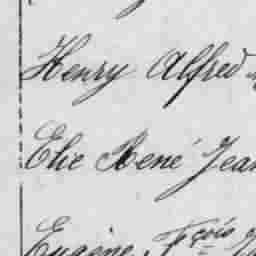 Henry Alfred
Elie René Jean
Eugène, Fçois